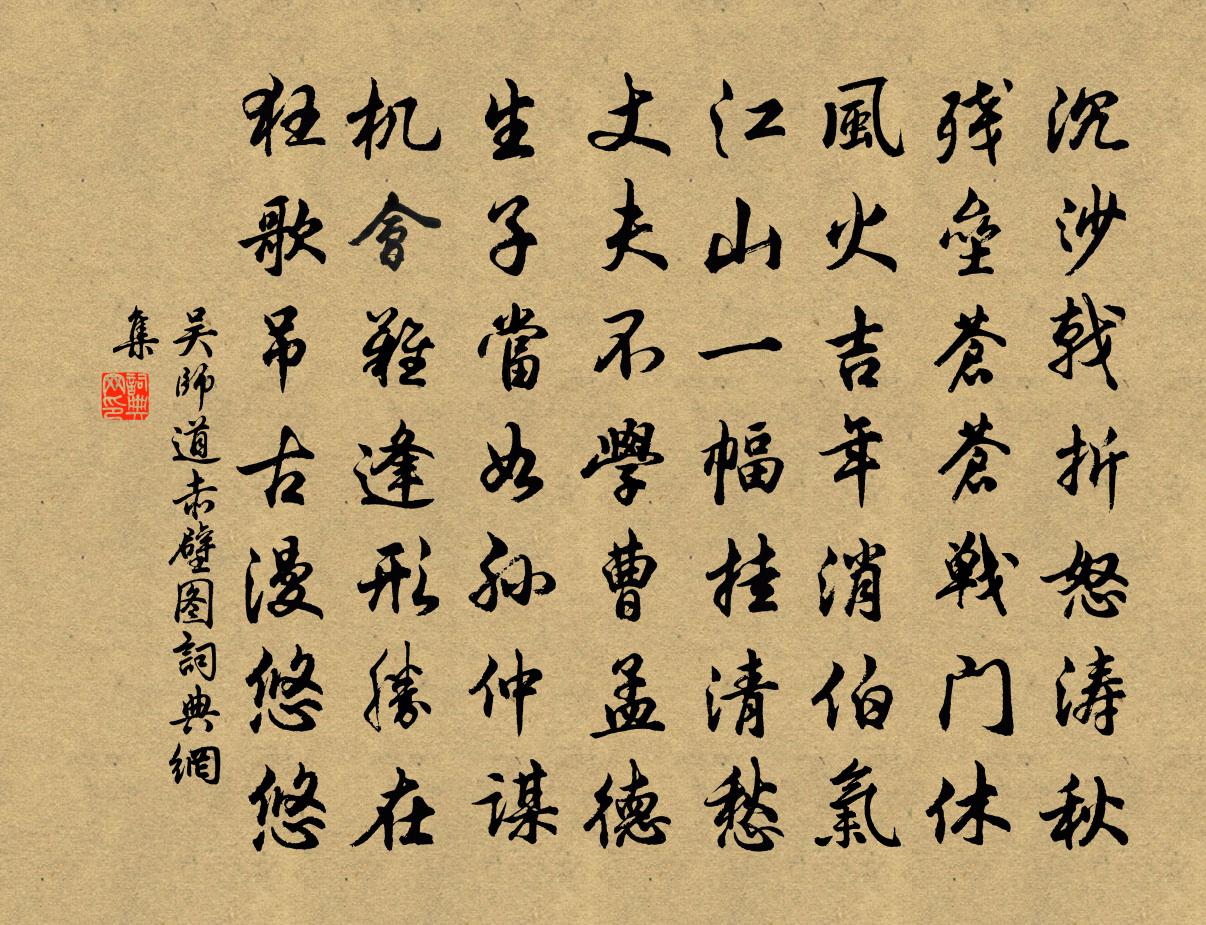 沉沙戟折怒涛秋
残垒蒼蒼戰门休
風火吉年消伯氣
江山一幅挂清愁
丈夫不學曹孟德
生子當如孙仲謀
机會難逢形勝在
狂歌吊古漫悠悠
吴師道赤壁图詞典網
集
詞典网印